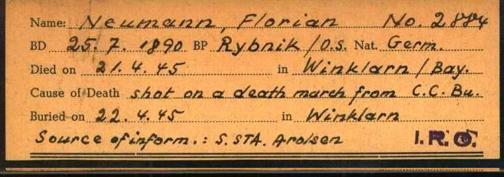 Name: Neumann, Florian No. 2884
BD 25.7.1890 BP Rybnik/O.S. Nat. Germ.
Died on 21.4.45 in Winklarn/Bay.
Cause of Death shot on a death march from C.C. Bu.
Buried on 22.4.45 in Winklarn
Source of inform.: S.STA. Arolsen I.R.O.